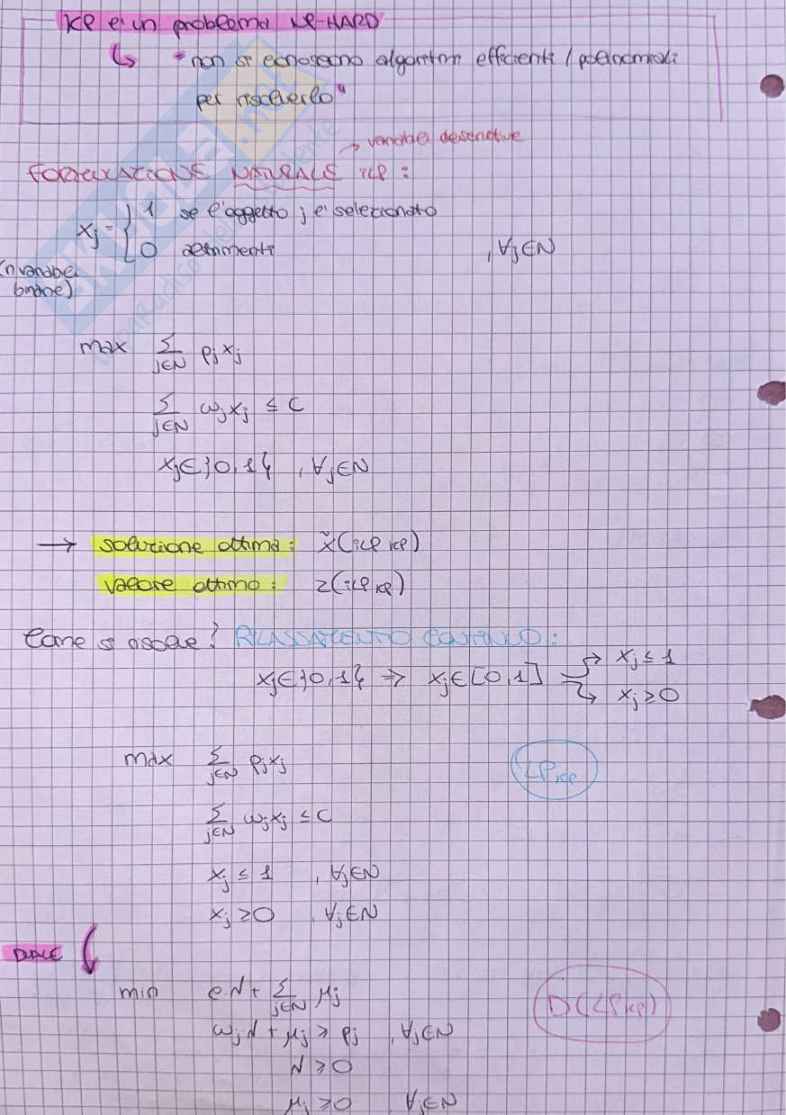 KP e' un problema NP-HARD
↳ "non si conoscono algoritmi efficienti / polinomiali
per risolverlo"
→ variabili descrittive
FORMULAZIONE NATURALE ILP :
xj = { 1 se l'oggetto j e' selezionato
0 altrimenti , ∀j∈N
(n variabili
binarie)
max ∑j∈N pj xj
∑j∈N wj xj ≤ C
xj ∈ {0,1} , ∀j∈N
→ soluzione ottima : x(ILP KP)
valore ottimo : z(ILP KP)
Come si risolve? RILASSAMENTO CONTINUO :
xj ∈ {0,1} ⇒ xj ∈ [0,1] → xj ≤ 1
↳ xj ≥ 0
max ∑j∈N pj xj LP KP
∑j∈N wj xj ≤ C
xj ≤ 1 , ∀j∈N
xj ≥ 0 , ∀j∈N
DUALE
min cλ + ∑j∈N μj D(LP KP)
wj λ + μj ≥ pj , ∀j∈N
λ ≥ 0
μj ≥ 0 ∀j∈N